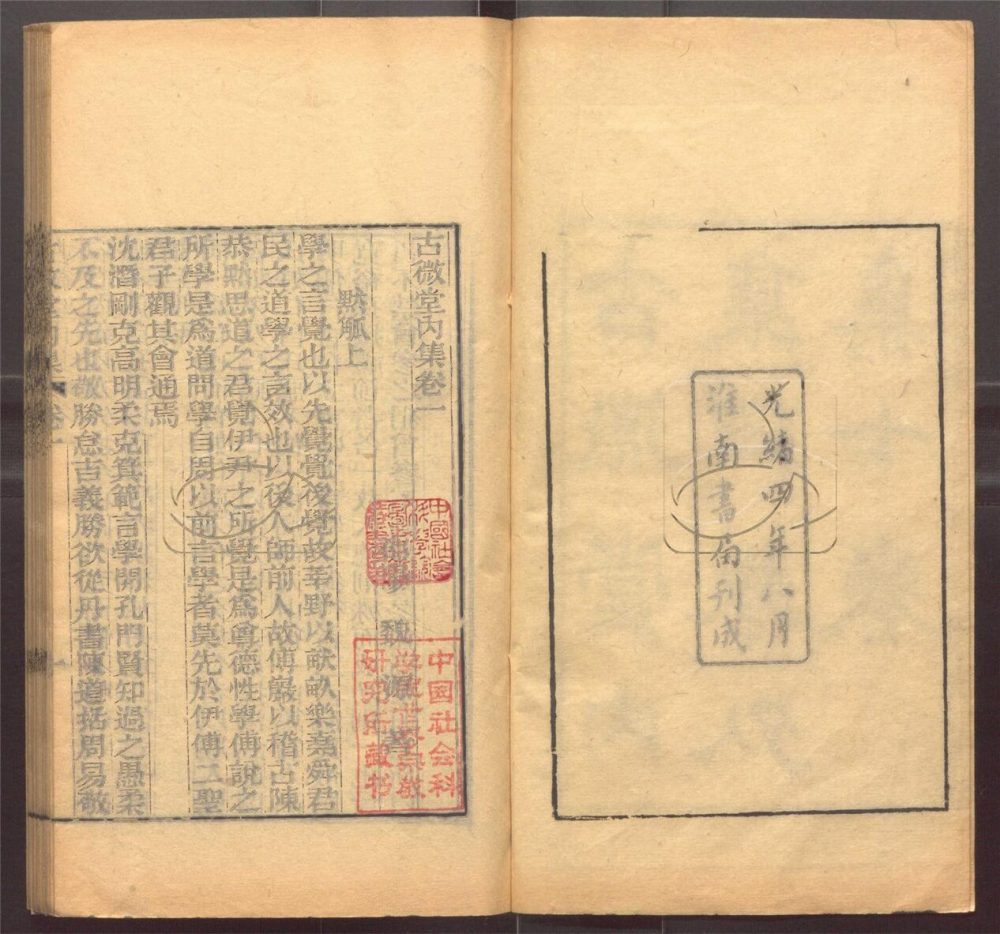 光緒四年八月
淮南書局刊成
古微堂內集卷一
魏源著
默觚上
學之言覺也以先覺覺後覺故莘野以畎畝樂堯舜君
民之道學之言效也以後人師前人故傅巖以稽古陳
恭默思道之君覺伊尹之所覺是爲尊德性學傅說之
所學是爲道問學自周以前言學者莫先於伊傅二聖
君子觀其會通焉
沈潛剛克高明柔克箕範言學開孔門賢知過之愚柔
不及之先也敬勝怠吉義勝欲從丹書陳道括周易敬
古微堂內集 卷一 一
中國社會
中国社会科
研究所藏书